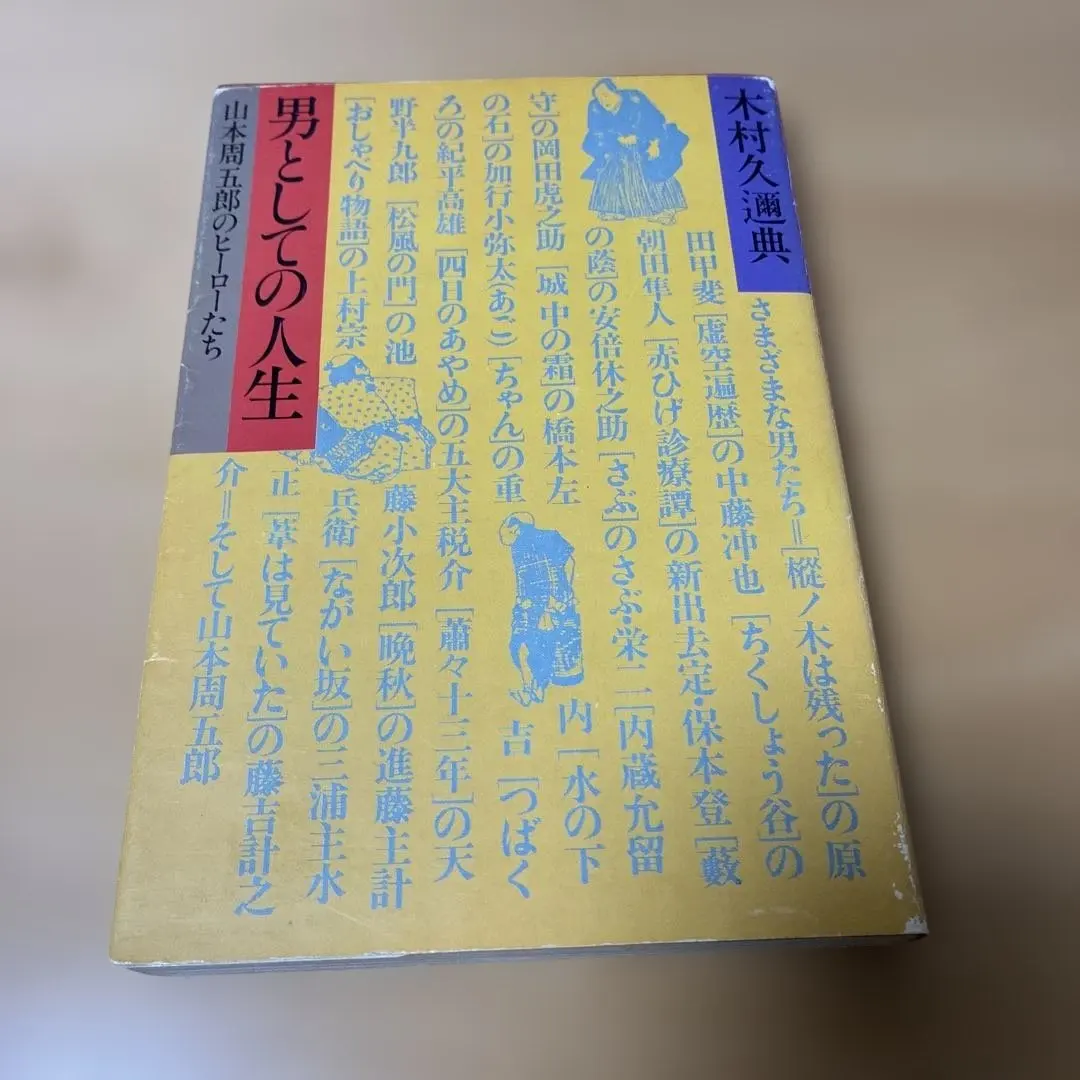 木村久邇典
さまざまな男たち＝［樅ノ木は残った］の原
田甲斐［虚空遍歴］の中藤冲也［ちくしょう谷］の
朝田隼人［赤ひげ診療譚］の新出去定・保本登［藪
の蔭］の安倍休之助［さぶ］のさぶ・栄二［内蔵允留
守］の岡田虎之助［城中の霜］の橋本左
内［水の下
の石］の加行小弥太（あご）［ちゃん］の重
吉［つばく
ろ］の紀平高雄［四日のあやめ］の五大主税介［蕭々十三年］の天
野半九郎［松風の門］の池
藤小次郎［晩秋］の進藤主計
［おしゃべり物語］の上村宗
兵衛［ながい坂］の三浦主水
正［葦は見ていた］の藤吉計之
介＝そして山本周五郎
男としての人生
山本周五郎のヒーローたち